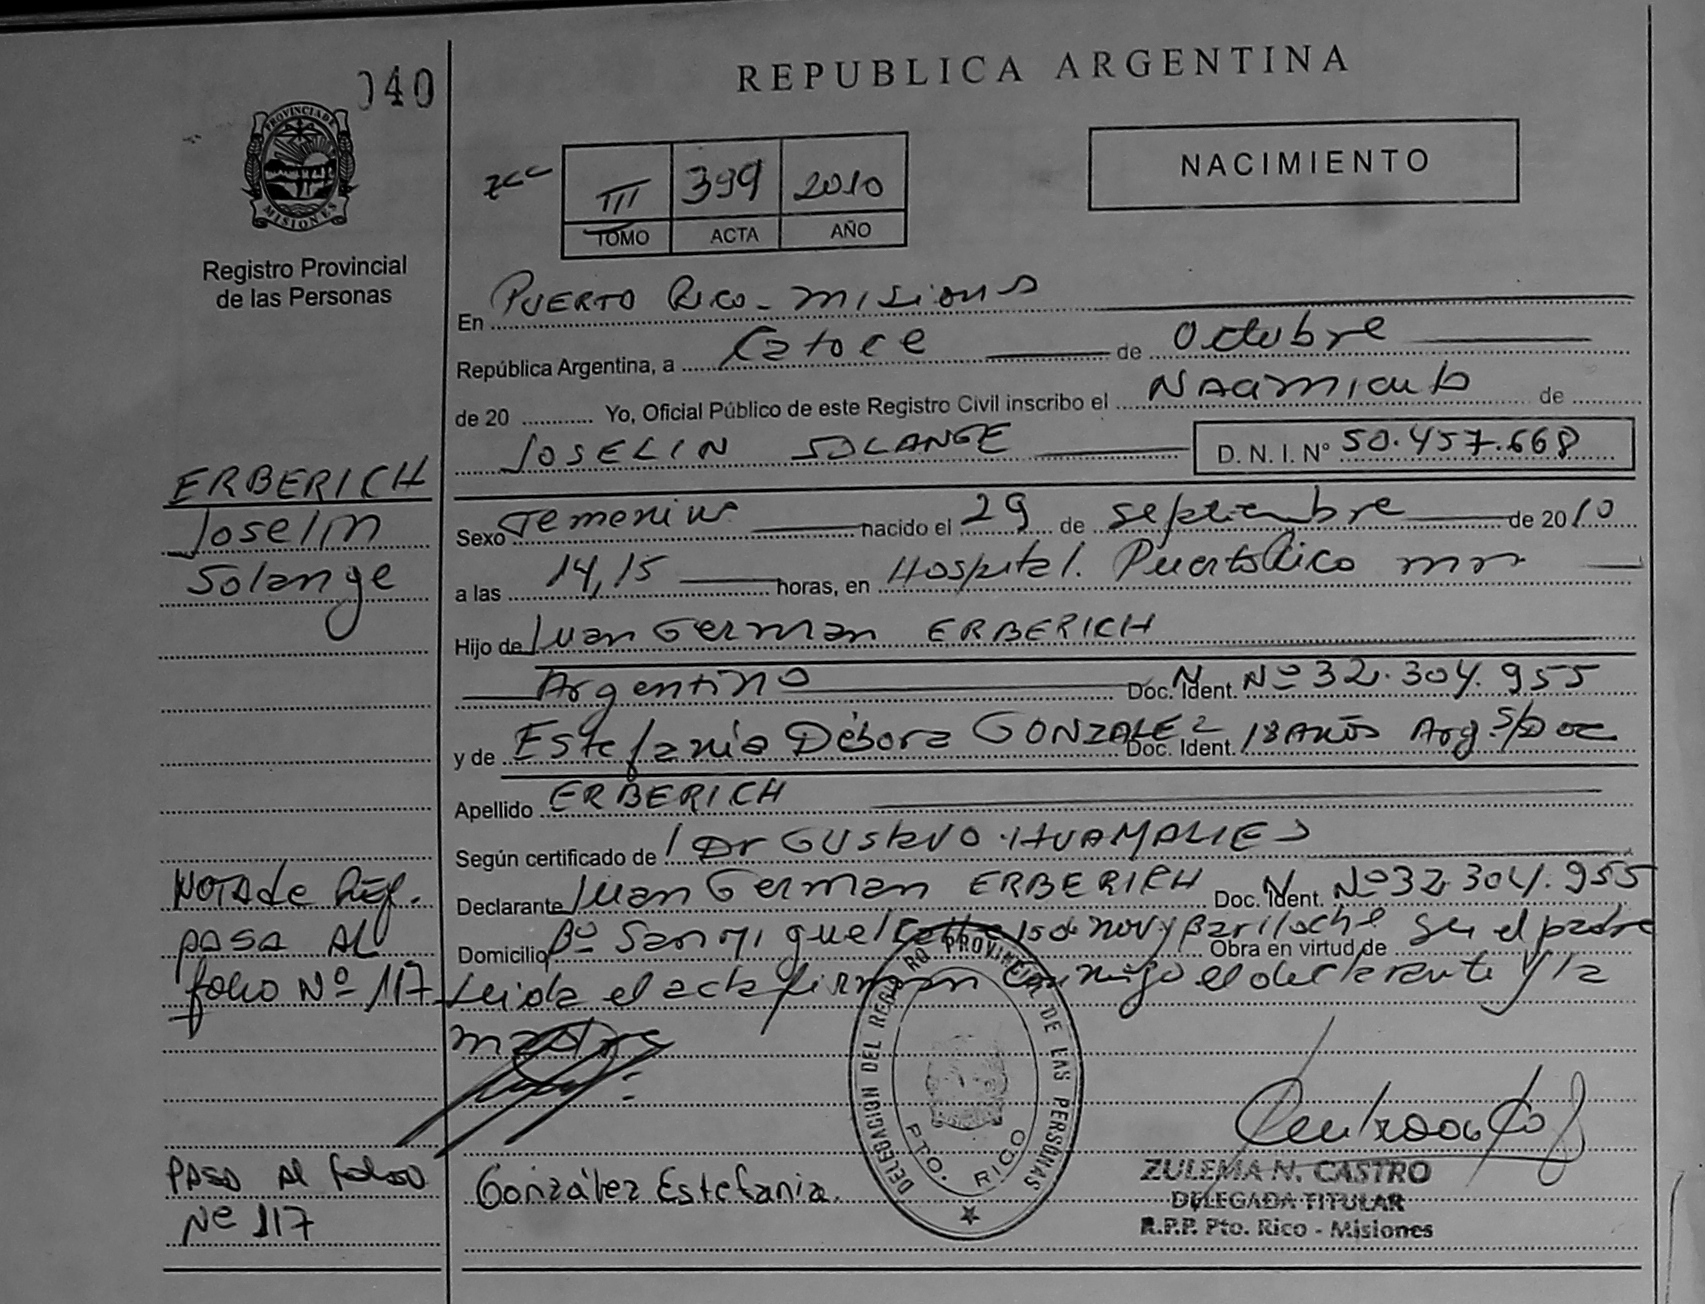 040
REPUBLICA ARGENTINA
PROVINCIA DE MISIONES
Registro Provincial
de las Personas
III 399 2010
TOMO ACTA AÑO
NACIMIENTO
En PUERTO Rico - misiones
República Argentina, a Catoce de Octubre
de 20 Yo, Oficial Público de este Registro Civil inscribo el NAcimiento de
JOSELIN SOLANGE D. N. I. Nº 50.457.668
ERBERICH
Joselin
Solange
Sexo Femenino nacido el 29 de septiembre de 2010
a las 14,15 horas, en Hospital. Puerto Rico mns
Hijo de Juan German ERBERICH
Argentino Doc. N. Ident. Nº 32.304.955
y de Estefania Débora GONZALEZ Doc. Ident. 18 Años Arg. S/Doc
Apellido ERBERICH
Según certificado de l Dr GUSTAVO HUAMALIES
Declarante Juan German ERBERICH Doc. N. Ident. Nº 32.304.955
Domicilio Bº San Miguel Calle 15 de nov y Bariloche Obra en virtud de ser el padre
Leida el acta firman conmigo el declarante y la
madre
NOTA de Ref.
PASA AL
folio Nº 117
DELEGACIÓN DEL REGISTRO PROVINCIAL DE LAS PERSONAS
PTO. RICO
González Estefania.
ZULEMA N. CASTRO
DELEGADA TITULAR
R.P.P. Pto. Rico - Misiones
PASA Al folio
Nº 117